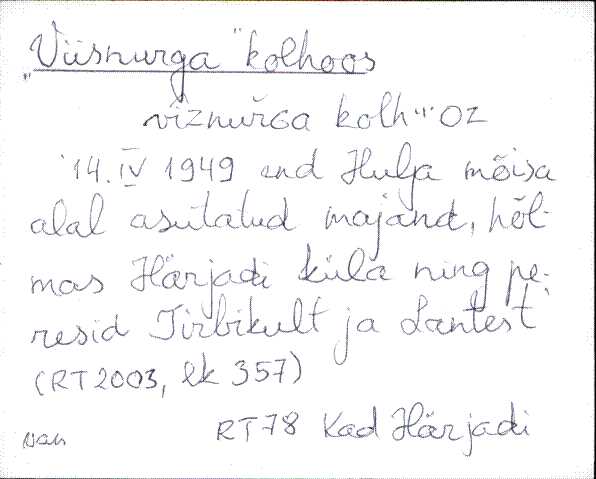 „Viisnurga" kolhoos
vīznuřGa kolh⋯oz
14. IV 1949 end Hulja mõisa
alal asutatud majand, hõl-
mas Härjadi küla ning pe-
resid Tirbikult ja Lantest
(RT2003, lk 357)
RT78 Kad Härjadi